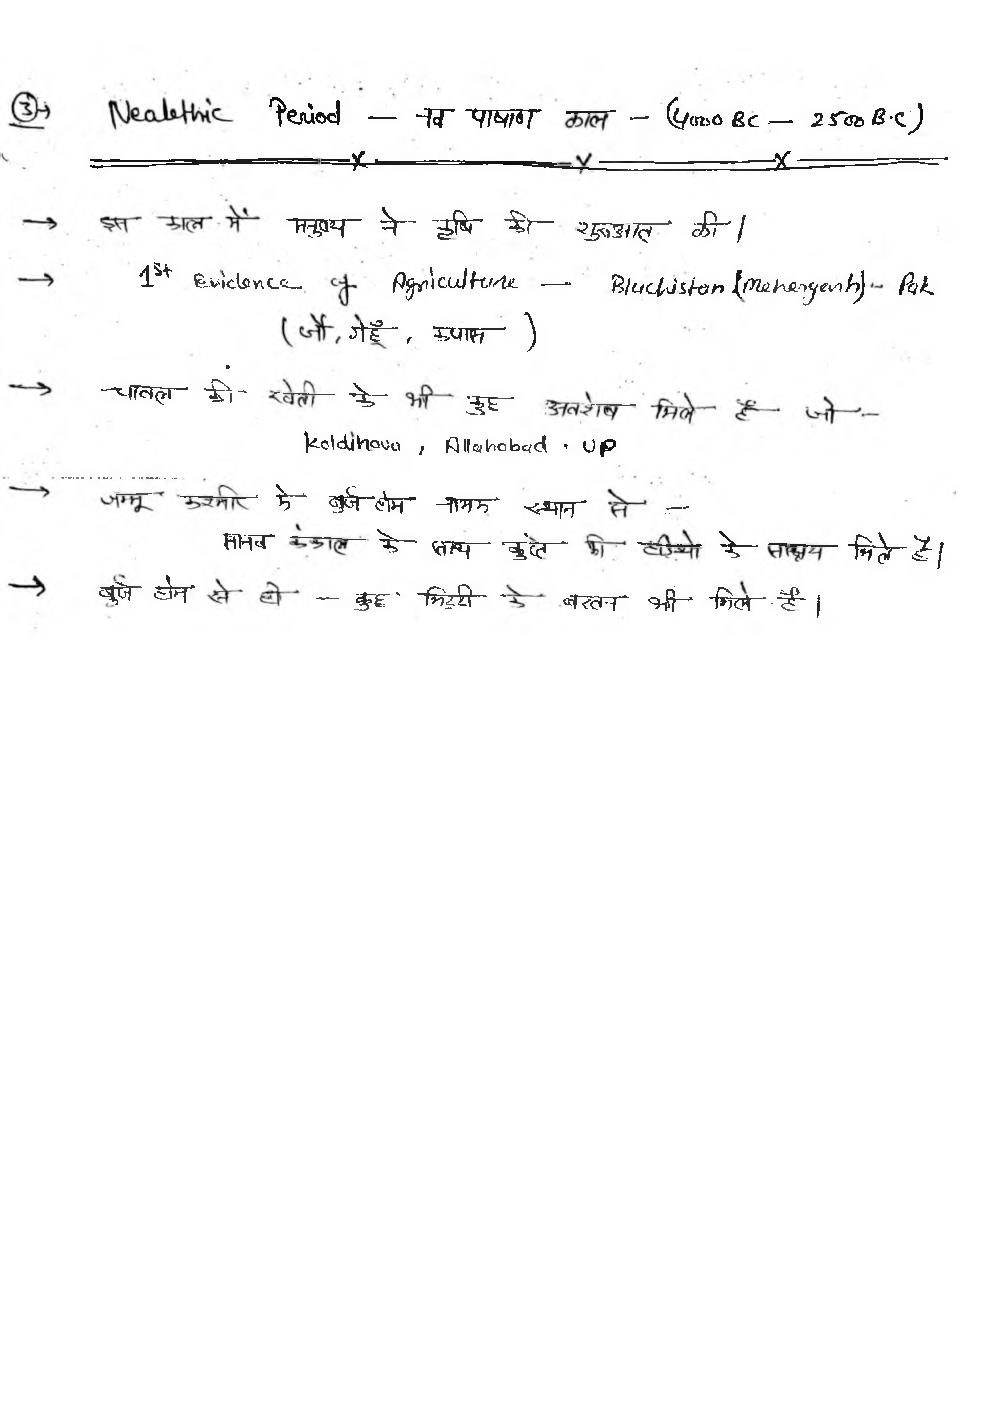 ③→ Nealethic Period — नव पाषाण काल — (4000 BC — 2500 B.C)
→ इस काल में मनुष्य ने कृषि की शुरुआत की।
→ 1st Evidence of Agriculture — Bluchistan (Mehergarh) - Pak
(जौ, गेहूँ, कपास)
→ चावल की खेती के भी कुछ अवशेष मिले है जो -
Koldihava, Allahabad. UP
→ जम्मू कश्मीर के बुर्ज होम नामक स्थान से -
मानव कंकाल के साथ कुत्ते की हड्डियो के साक्ष्य मिले है।
→ बुर्ज होम से ही - कुछ मिट्टी के बरतन भी मिले हैं।